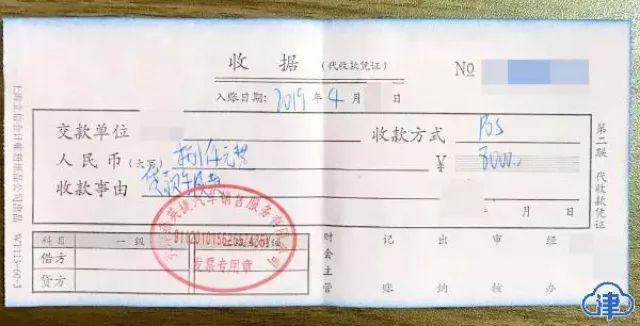 收 据 (代收款凭证) №
入账日期: 2019 年 4 月 日
交款单位 收款方式 POS
人民币(大写) 捌仟元整 ¥ 8000
收款事由
科目 一级
借方
贷方
财会主管 记账 出纳 审核 经办
第二联 代收款凭证
英捷汽车销售服务有限公司
发票专用章
津